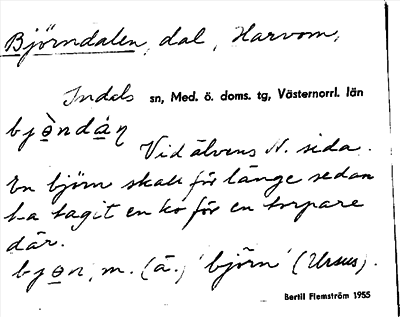 Björndalen, dal, Harvom,
Indals sn, Med. ö. doms. tg, Västernorrl. län
bjə̀ndáṇ
Vid älvens N. sida.
En björn skall för länge sedan
ha tagit en ko för en torpare
där.
bjən, m. (ä.) 'björn' (Ursus).
Bertil Flemström 1955